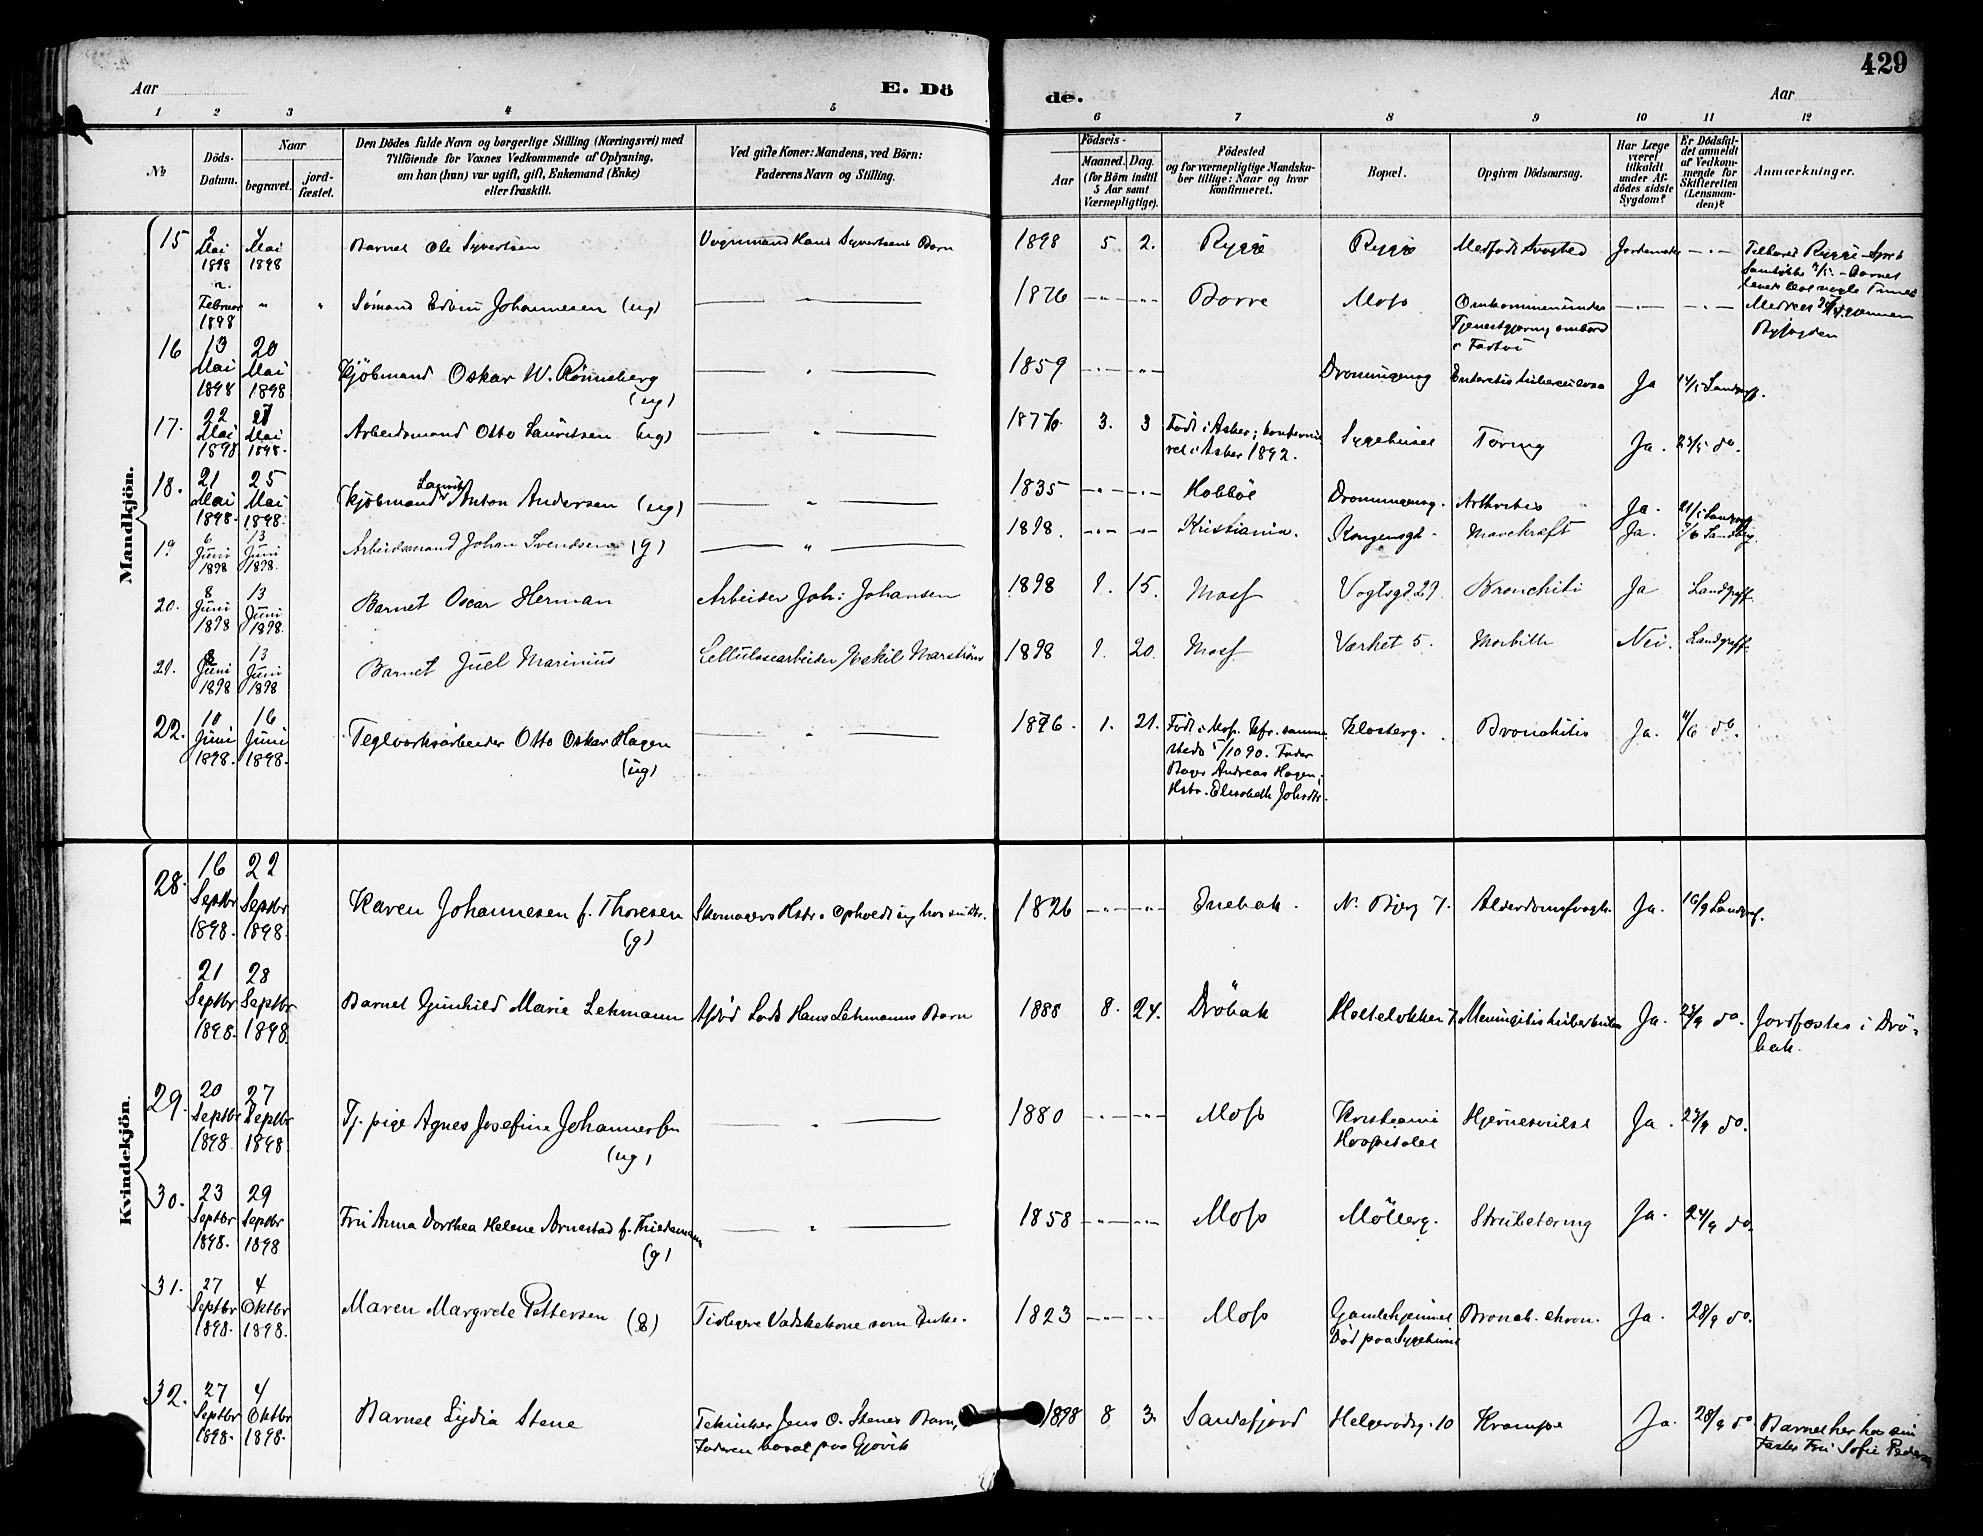 429
Aar
E. Dö
de.
Aar
1 2 3 4 5 6 7 8 9 10 11 12
No
Döds-Datum.
Naar
begravet.
jord-fæstet.
Den Dödes fulde Navn og borgerlige Stilling (Næringsvei) med
Tilföiende for Voxnes Vedkommende af Oplysning,
om han (hun) var ugift, gift, Enkemand (Enke)
eller fraskilt.
Ved gifte Koner: Mandens, ved Börn:
Faderens Navn og Stilling.
Födsels-
Aar
Maaned. Dag.
(for Börn indtil
5 Aar samt
Værnepligtige).
Födested
og for værnepligtige Mandska-
ber tillige: Naar og hvor
konfirmeret.
Bopæl.
Opgiven Dödsaarsag.
Har Læge
været
tilkaldt
under Af-
dödes sidste
Sygdom?
Er Dödsfal-
det anmeldt
af Vedkom-
mende for
Skifteretten
(Lensman-
den)?
Anmærkninger.
Mandkjön.
15 2 Mai 1898 4 Mai 1898 Barnet Ole Syvertsen Vognmand Hans Syvertsens Barn 1898 5. 2. Rygge Rygge Medfödt Svaghed
2. Februar 1898 " " Sömand Edvin Johannesen (ug) — " — 1876 Borre Moss Omkommen under
Tjenestgjøring ombord
Byfogden
16 13 Mai 1898 20 Mai 1898 Kjöbmand Oskar W. Rönneberg (ug) — " — 1859 Dronningensg Enteritis tuberculosa Ja
17. 22 Mai 1898 27 Mai 1898. Arbeidsmand Otto Lauritsen (ug) — " — 1876 3. 3 Födt i Asker; konfirme-
ret i Asker 1892. Sygehuset Tæring Ja. 23/5 do.
18. 21 Mai 1898. 25 Mai 1898. Kjöbmand Laurits Anton Andersen (ug) — " — 1835 Hobböl Dronningensg. Arthritis Ja.
19 6 Juni 1898 13 Juni 1898. Arbeidsmand Johan Svendsen (g) — " — 1898. Kristiania. Kongensgt. Mavekræft Ja.
20. 8 Juni 1898 13 Juni 1898. Barnet Oscar Herman Arbeider Joh: Johansen 1898 1. 15. Moss Vogtsgd 29. Bronchiti Ja Landgaff
21. 8 Juni 1898 13 Juni 1898 Barnet Juel Marinius Cellulosearbeider Eskil Marström 1898 1. 20. Moss Værket 5. Morbilli Nei. Landgaff
22. 10 Juni 1898. 16 Juni 1898. Teglværksarbeider Otto Oskar Hagen (ug) — " — 1876. 1. 21. Födt i Moss. Kfr. samme-
steds 5/10 90. Fader
Bager Andreas Hagen,
Hstr. Elisabeth Johsdtr. Klosterg. Bronchitis Ja. 11/6 do
Kvindekjön.
28. 16 Septbr 1898. 22 Septbr 1898. Karen Johannesen f. Thoresen (g) 1826 Enebak. N. Bjerg 7. Alderdomssvagh. Ja. 16/9
21 Septbr 1898. 28 Septbr 1898. Barnet Gunhild Marie Lehmann Afdöd Lods Hans Lehmanns Barn 1888 8. 24. Dröbak Holtelökken 7. Meningitis tuberkulos Ja. 23/9 do. Jordfæstes i Drö-
bak.
29. 20 Septbr 1898. 27 Septbr 1898. Tj. pige Agnes Josefine Johannesen (ug) — " — 1880 Moss Kristiania
Hospitalet Hjernesvulst Ja. 23/9 do.
30. 23 Septbr 1898. 29 Septbr 1898 Fru Anna Dorthea Helene Arnestad f. Friedemann (g) — " — 1858 Moss Möllerg. Strubetæring Ja. 24/9 do.
31. 27 Septbr 1898. 4 Oktbr 1898. Maren Margrete Pettersen (E) Tidligere Vadskekone som Enke. 1823 Moss Gamlehjemmet
Död paa Sygehuset Bronch. chron. Ja. 28/9 do.
32. 27 Septbr 1898. 4 Oktbr 1898. Barnet Lydia Stene Tekniker Jens O. Stenes Barn,
Faderen bosat paa Gjövik 1898 8 3. Sandefjord Helgerödsg. 10 Krampe Ja. 28/9 do Barnet her hos sin
Faster Fru Sofie Pedersen